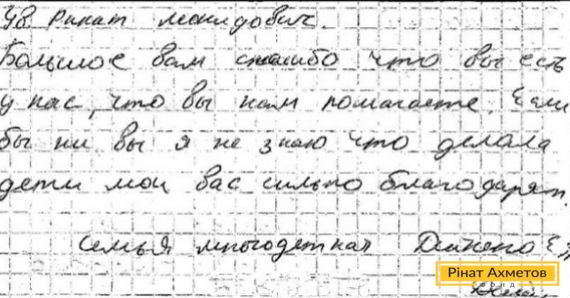 Ув Ринат леонидович.
Большое вам спасибо что вы есть
у нас, что вы нам помагаете. Если
бы ни вы я не знаю что делала
дети мои вас сильно благодарят.
Семья многодетная
Рінат Ахметов
фонд